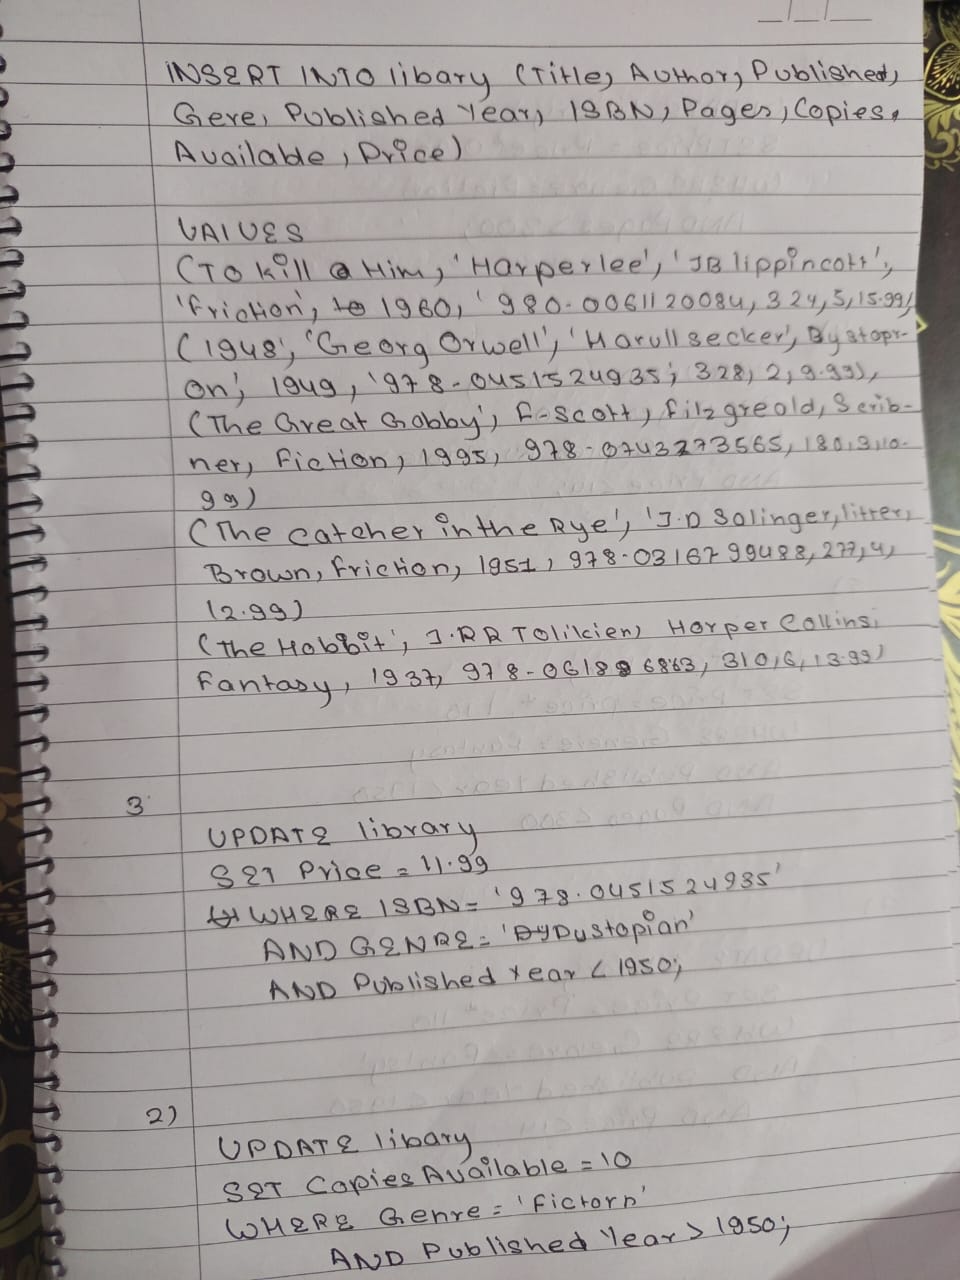 INSERT INTO libary (Title, Author, Published,
Gere, Published Year, ISBN, Pages, Copies,
Available, Price)
VALUES
(To kill a Him, 'Harperlee', 'JB lippincott',
'friction', to 1960, '980-0061120084, 324, 5, 15.99)
(1948', 'Georg Orwell', 'Harull secker', Bystopr-
on', 1949, '978-0451524935; 328, 2, 9.99),
(The Great Gabby', F-Scott, filzgreold, Scrib-
ner, fiction, 1995, 978-0743273565, 180, 3, 10-
99)
(The catcher in the Rye', 'J.D Salinger, litter,
Brown, friction, 1951, 978-0316799488, 277, 4,
12.99)
(the Hobbit', J.RR Tolilcien, Harper Collins,
fantasy, 1937, 978-0618968863, 310, 6, 13.99)
3
UPDATE library
SET Price = 11.99
WHERE ISBN = '978.0451524935'
AND GENRE = 'DyDustopian'
AND Published Year < 1950;
2)
UPDATE libary
SET Copies Available = 10
WHERE Genre = 'fictorn'
AND Published Year > 1950;